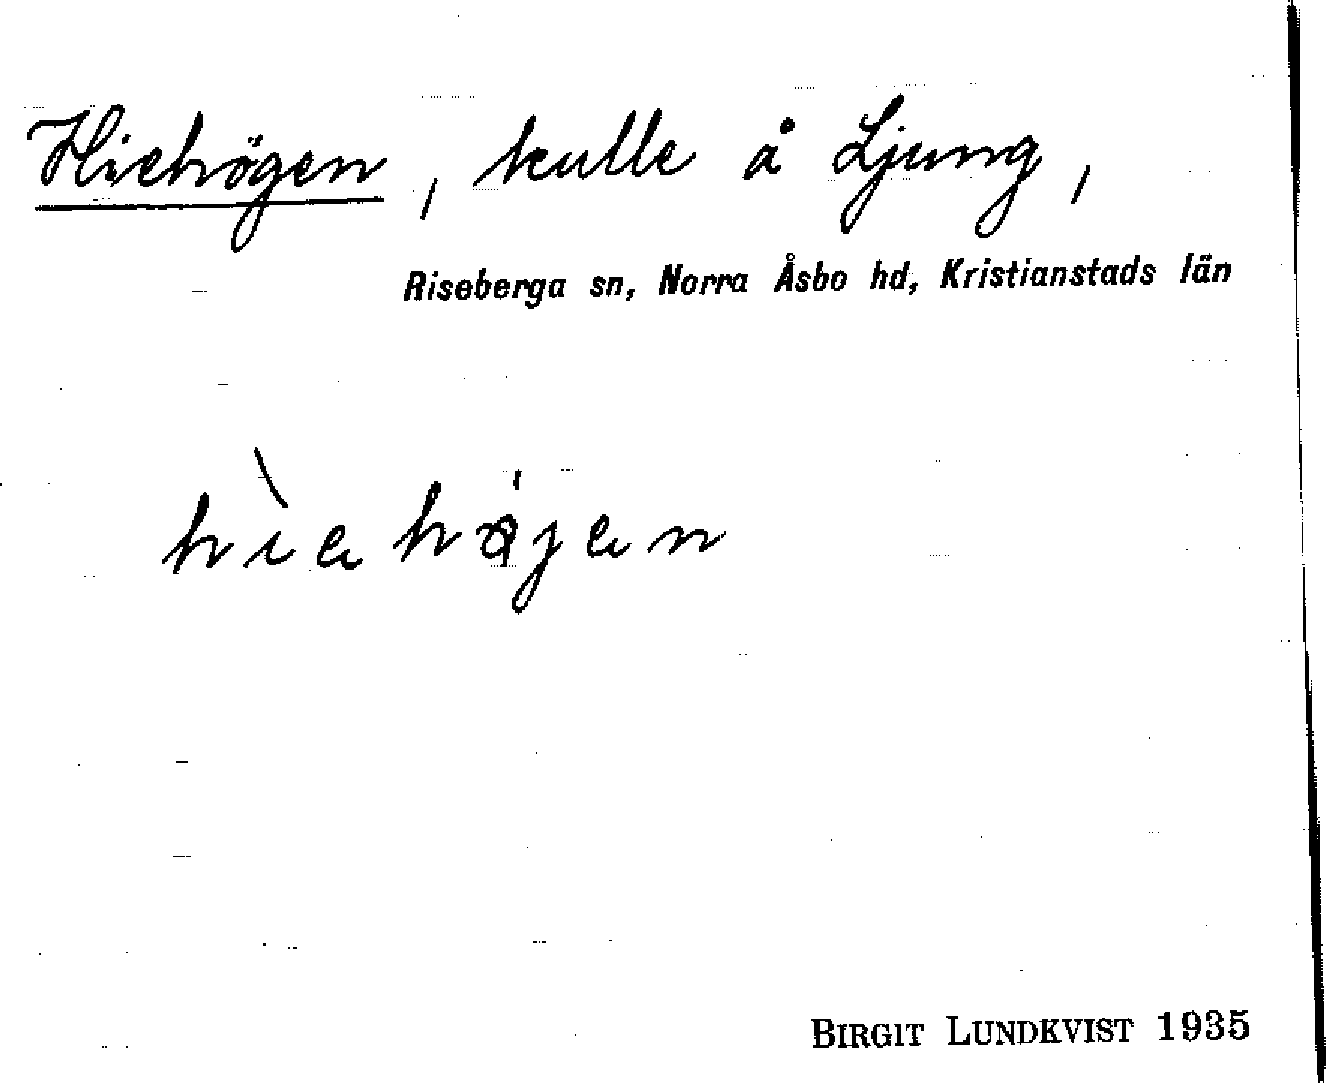 Hiehögen, kulle å Ljung,
Riseberga sn, Norra Åsbo hd, Kristianstads län
BIRGIT LUNDKVIST 1935